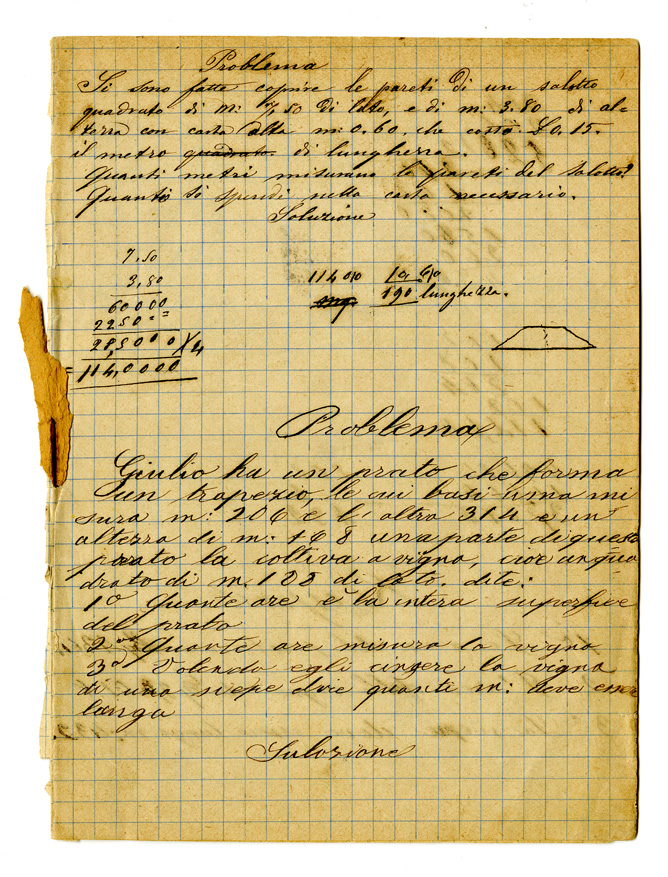 Problema
Si sono fatte coprire le pareti di un salotto
quadrato di m: 7,50 di lato, e di m: 3.80 di al=
tezza con carta alta m: 0.60. che costa £0,15.
il metro quadrato. di lunghezza.
Quanti metri misurano le pareti del salotto?
Quanto si spendi nella carta necessario.
Soluzione
7,50
3,80
60000
2250
28,5000 X4
= 114,0000
114 0/0 0,60
mq 190 lunghezza.
Problema
Giulio ha un prato che forma
un trapezio, le cui basi una mi
sura m: 206 e l'altra 314 e un'
altezza di m: 168 una parte di questo
prato la coltiva a vigna, cioè un qua
drato di m. 122 di lato. dite:
1º Quante are è la intera superfice
del prato
2º Quante are misura la vigna
3º Volendo egli cingere la vigna
di una siepe dire quanti m: deve esser
lunga
Sulozione